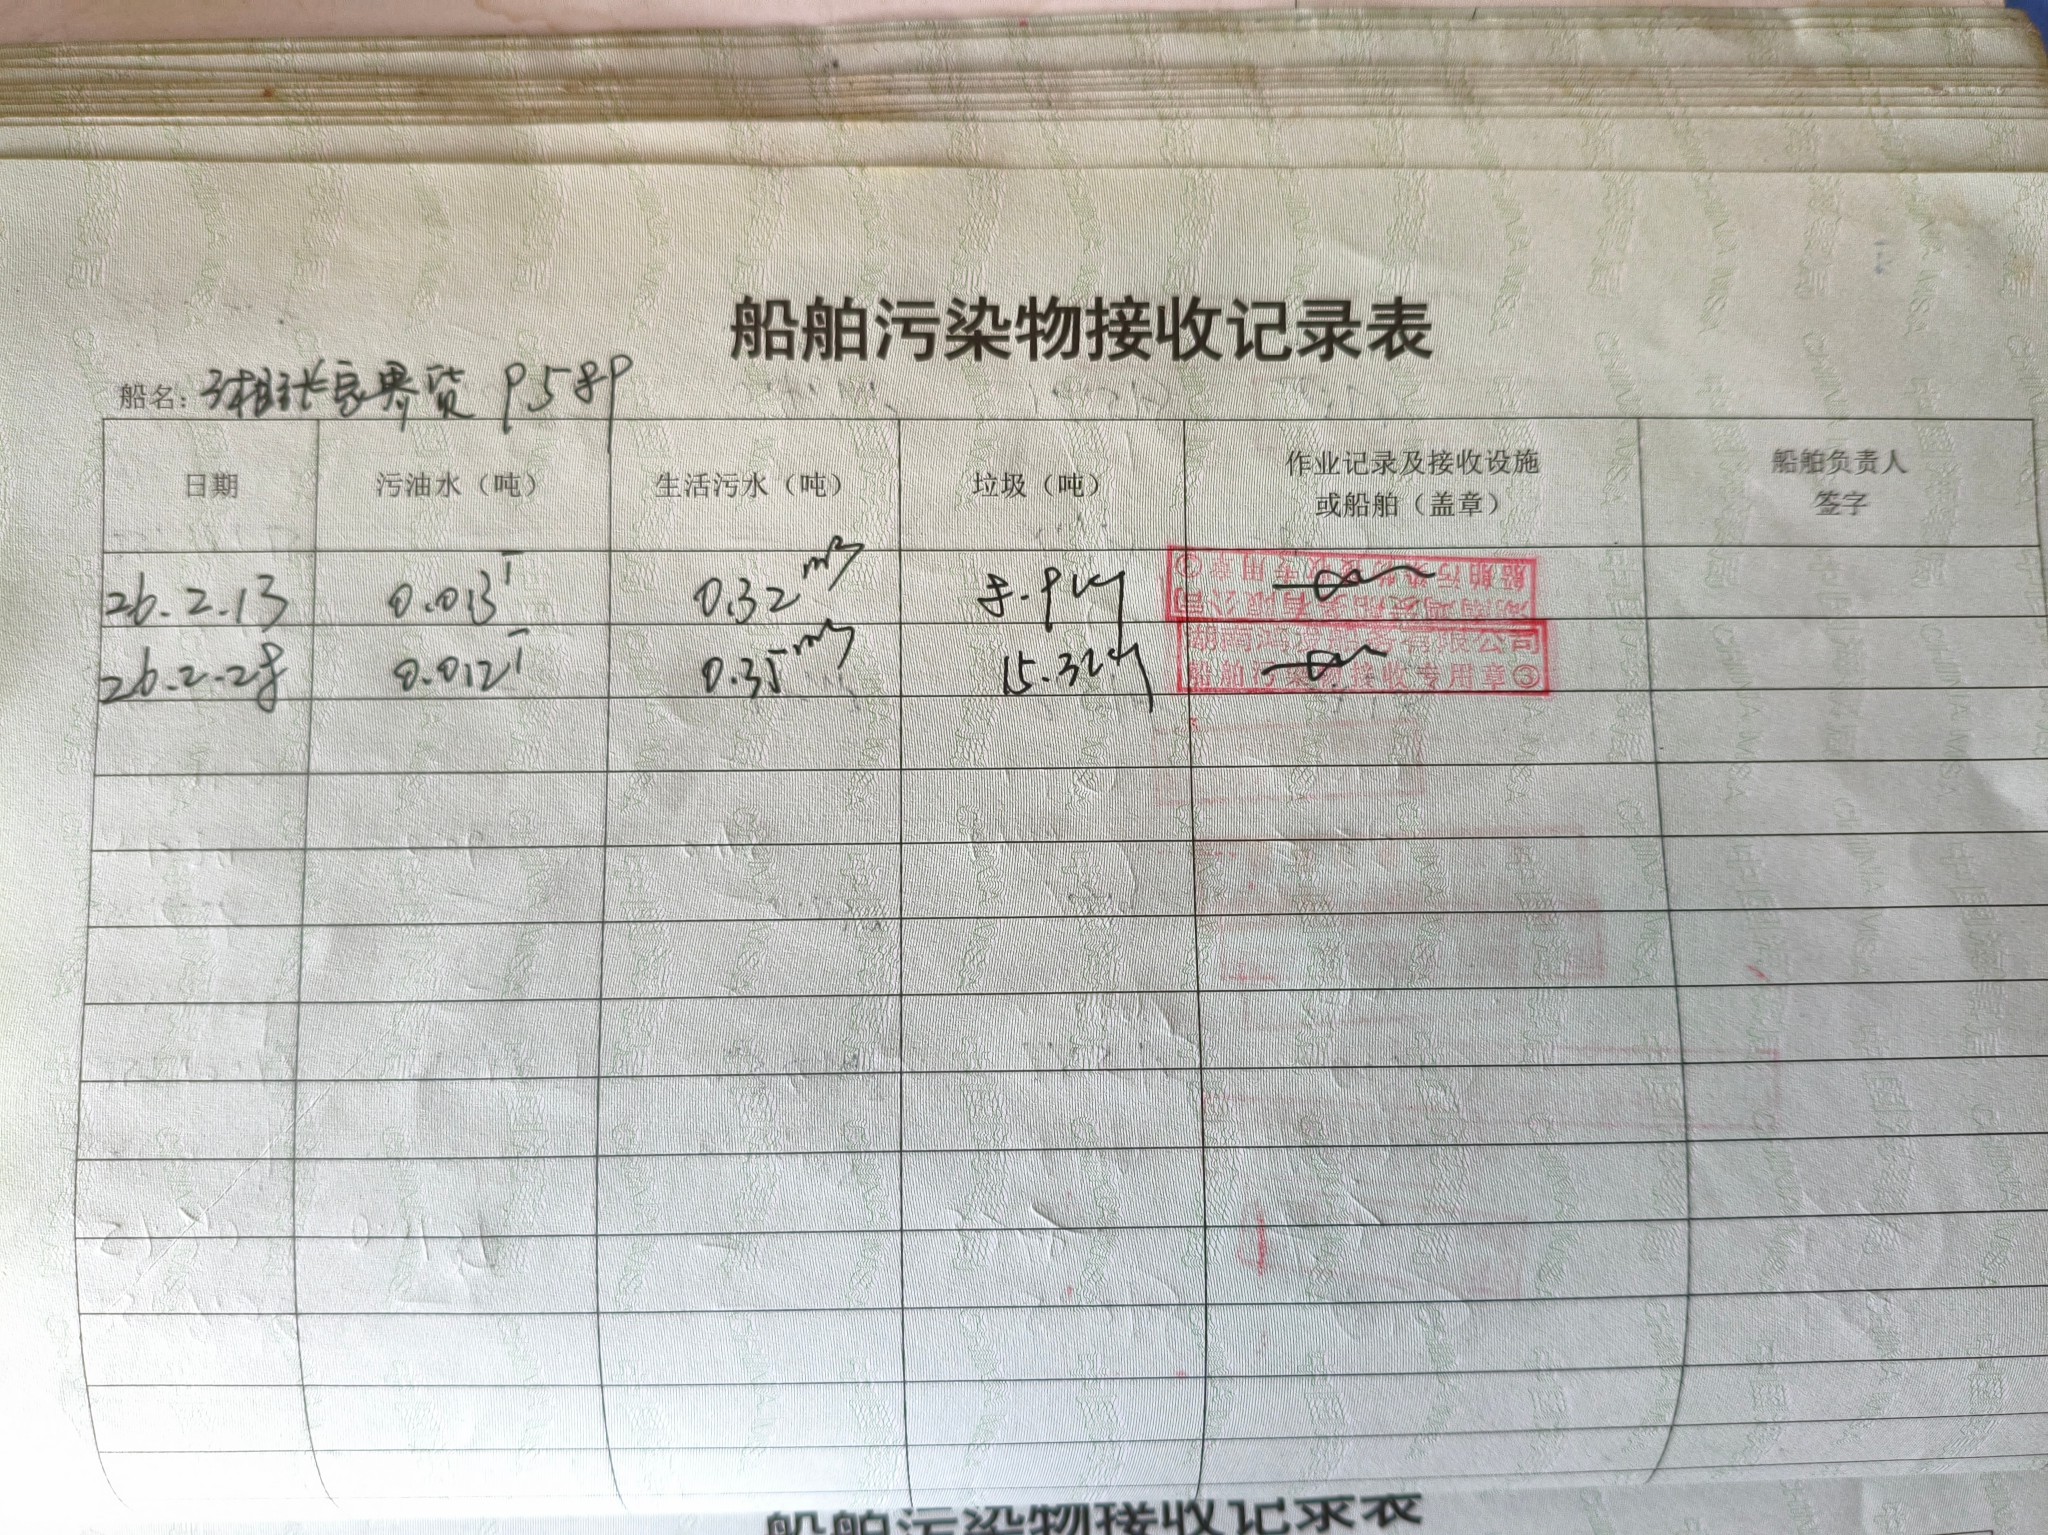 船舶污染物接收记录表
船名: 湘张家界货 9589
日期 污油水（吨） 生活污水（吨） 垃圾（吨） 作业记录及接收设施或船舶（盖章） 船舶负责人签字
26.2.13 0.013T 0.32m³ 8.9kg 船舶污染物接收专用章
26.2.28 0.012T 0.35m³ 15.32kg 船舶污染物接收专用章③
船舶污染物接收记录表